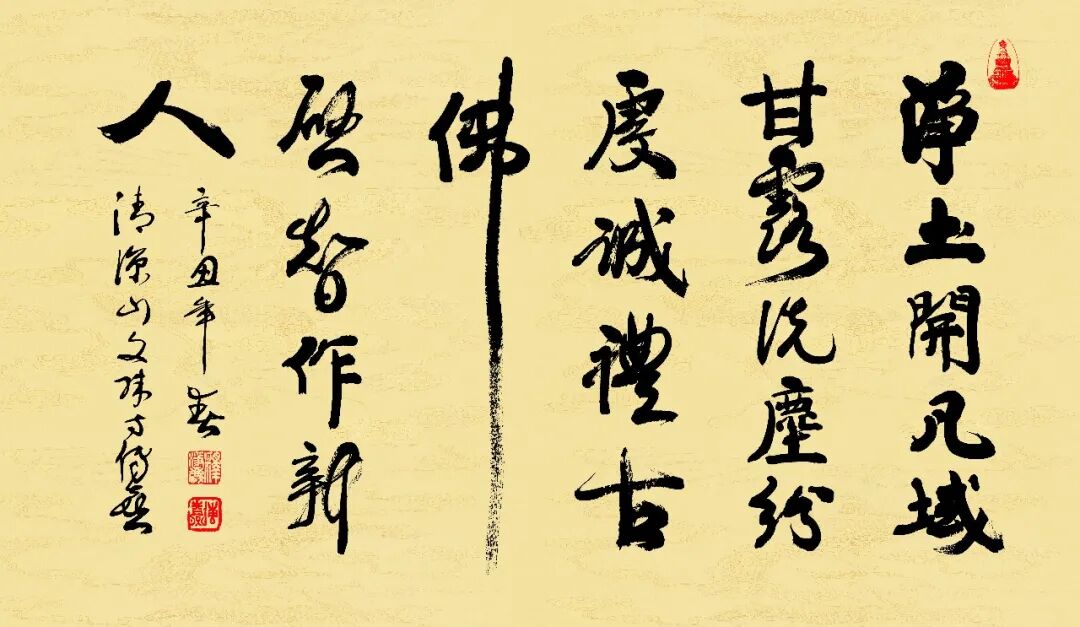 淨土開凡域
甘露洗塵紛
虔誠禮古
佛
啓智作新
人
辛丑年春
清涼山文殊寺傳真